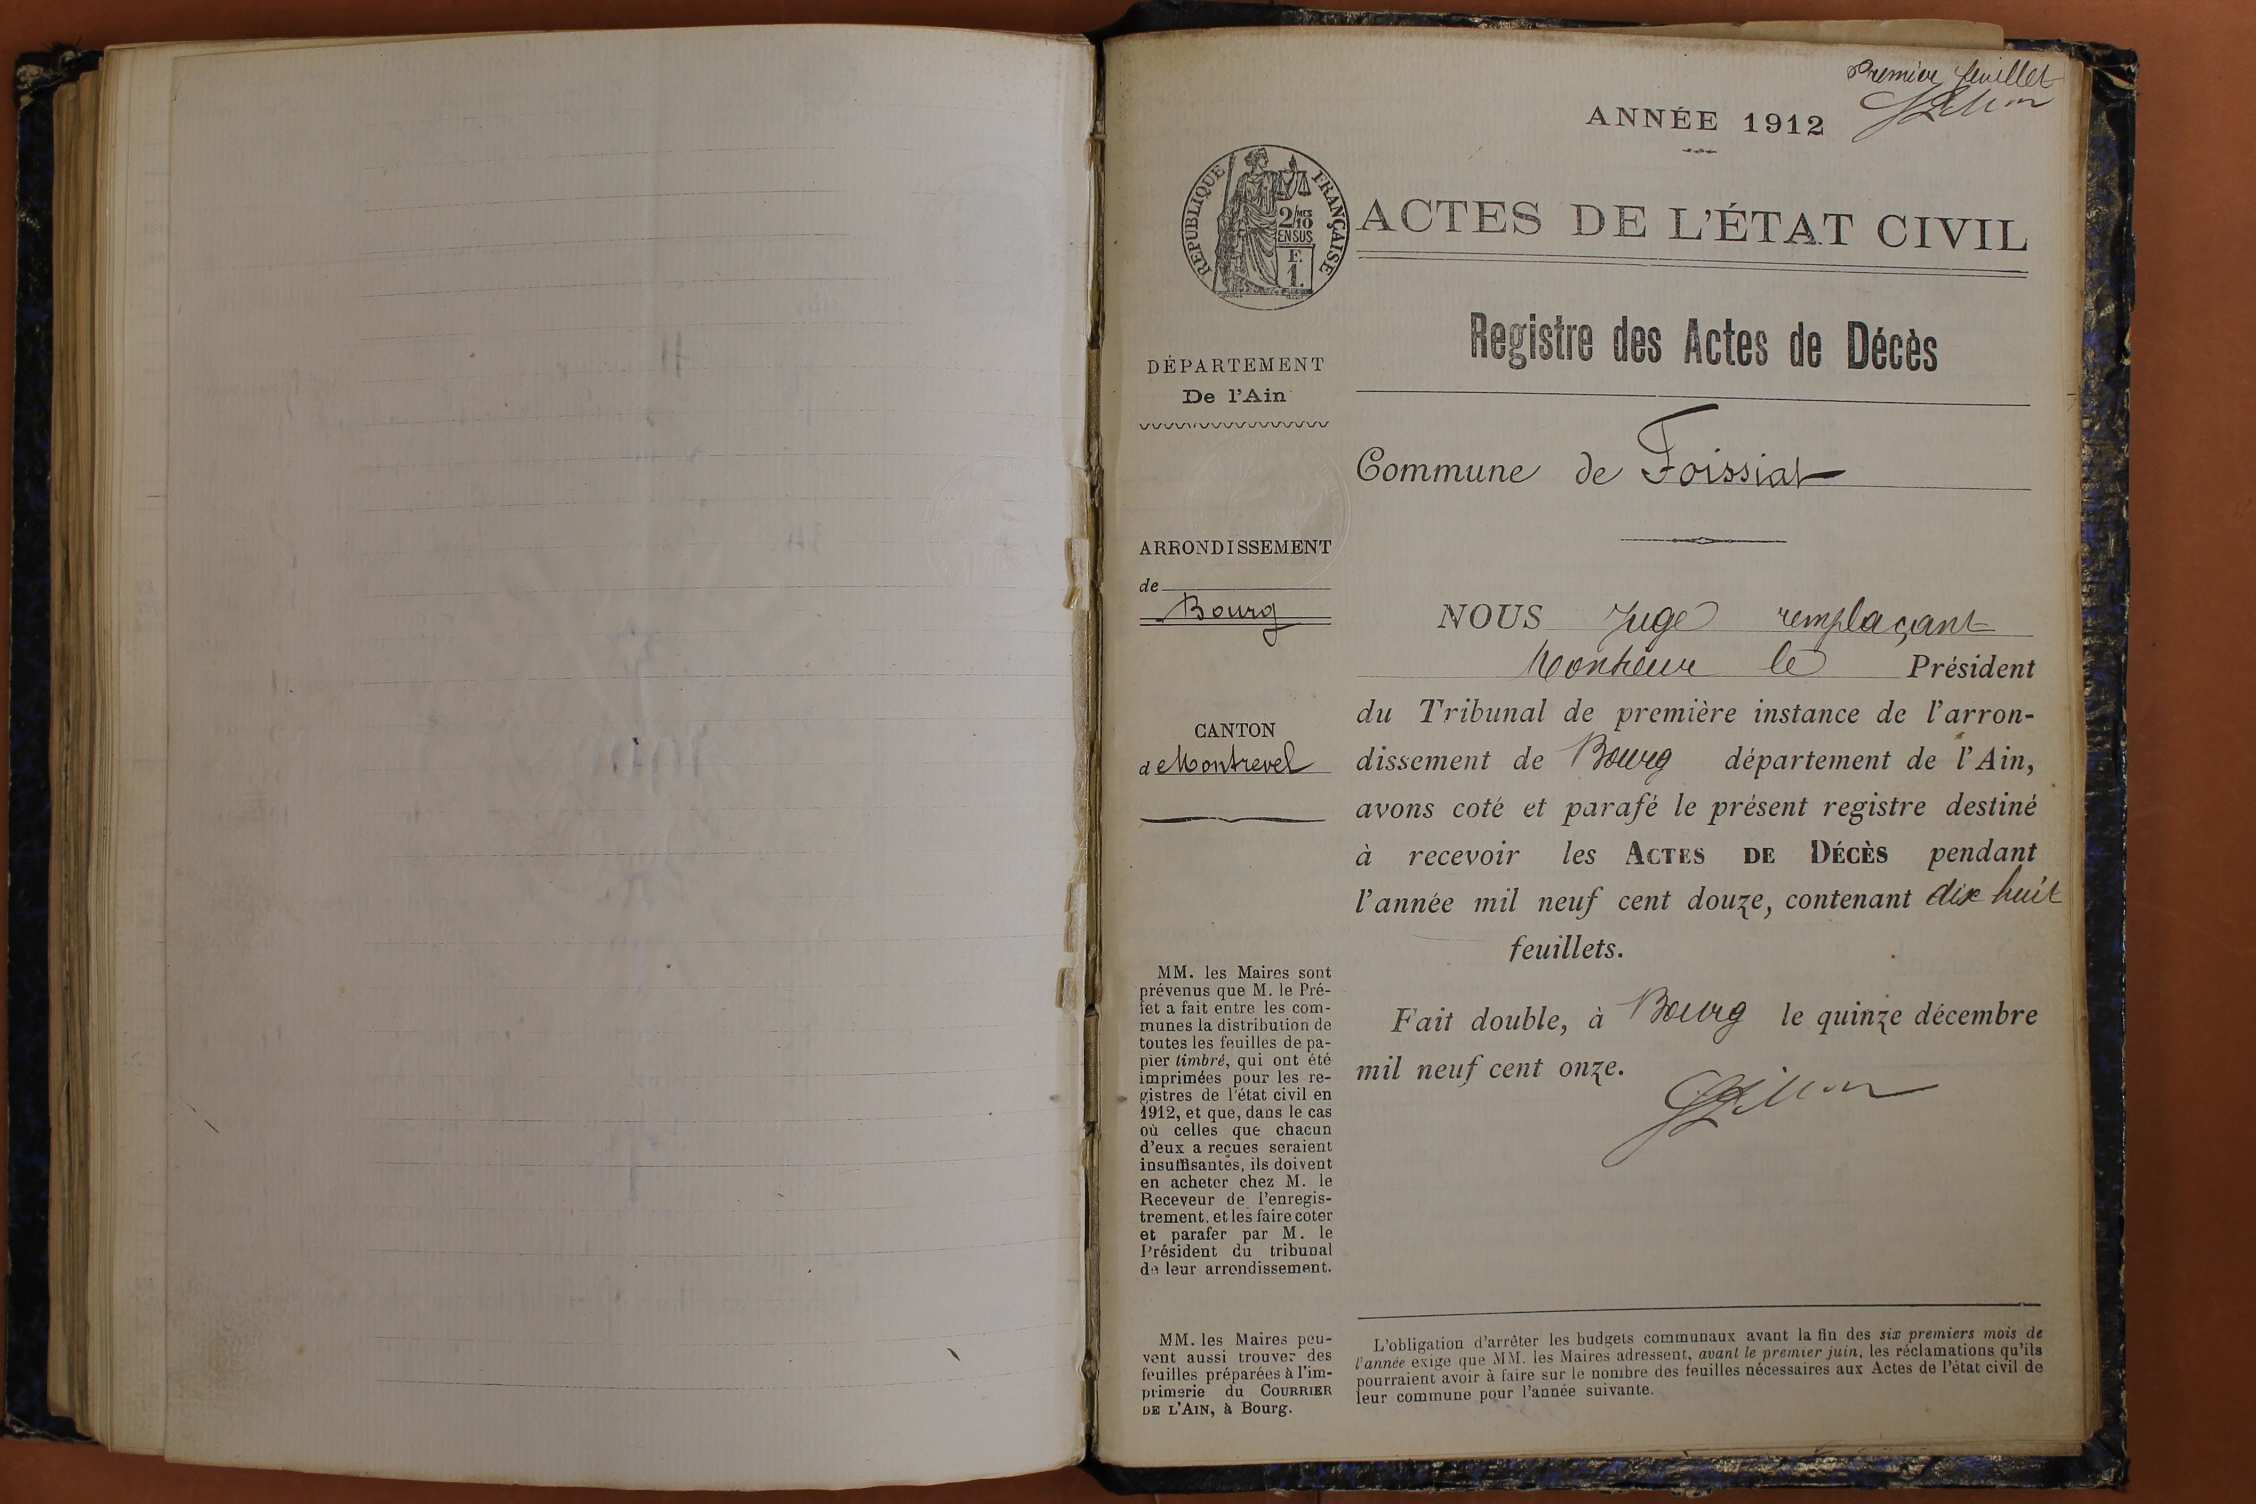 Premier feuillet
ANNÉE 1912
RÉPUBLIQUE FRANÇAISE
2/10MES
EN SUS
F.
1.
ACTES DE L'ÉTAT CIVIL
Registre des Actes de Décès
DÉPARTEMENT
De l'Ain
Commune de Foissiat
ARRONDISSEMENT
de
Bourg
CANTON
de Montrevel
NOUS Juge remplaçant
Monsieur le Président
du Tribunal de première instance de l'arron-
dissement de Bourg département de l'Ain,
avons coté et parafé le présent registre destiné
à recevoir les ACTES DE DÉCÈS pendant
l'année mil neuf cent douze, contenant dix huit
feuillets.
Fait double, à Bourg le quinze décembre
mil neuf cent onze.
MM. les Maires sont
prévenus que M. le Pré-
fet a fait entre les com-
munes la distribution de
toutes les feuilles de pa-
pier timbré, qui ont été
imprimées pour les re-
gistres de l'état civil en
1912, et que, dans le cas
où celles que chacun
d'eux a reçues seraient
insuffisantes, ils doivent
en acheter chez M. le
Receveur de l'enregis-
trement, et les faire coter
et parafer par M. le
Président du tribunal
de leur arrondissement.
MM. les Maires peu-
vent aussi trouver des
feuilles préparées à l'im-
primerie du COURRIER
DE L'AIN, à Bourg.
L'obligation d'arrêter les budgets communaux avant la fin des six premiers mois de
l'année exige que MM. les Maires adressent, avant le premier juin, les réclamations qu'ils
pourraient avoir à faire sur le nombre des feuilles nécessaires aux Actes de l'état civil de
leur commune pour l'année suivante.